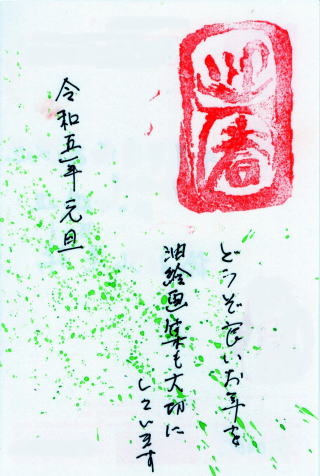 どうぞ良いお年を
油絵画集も大切に
しています
令和五年元旦